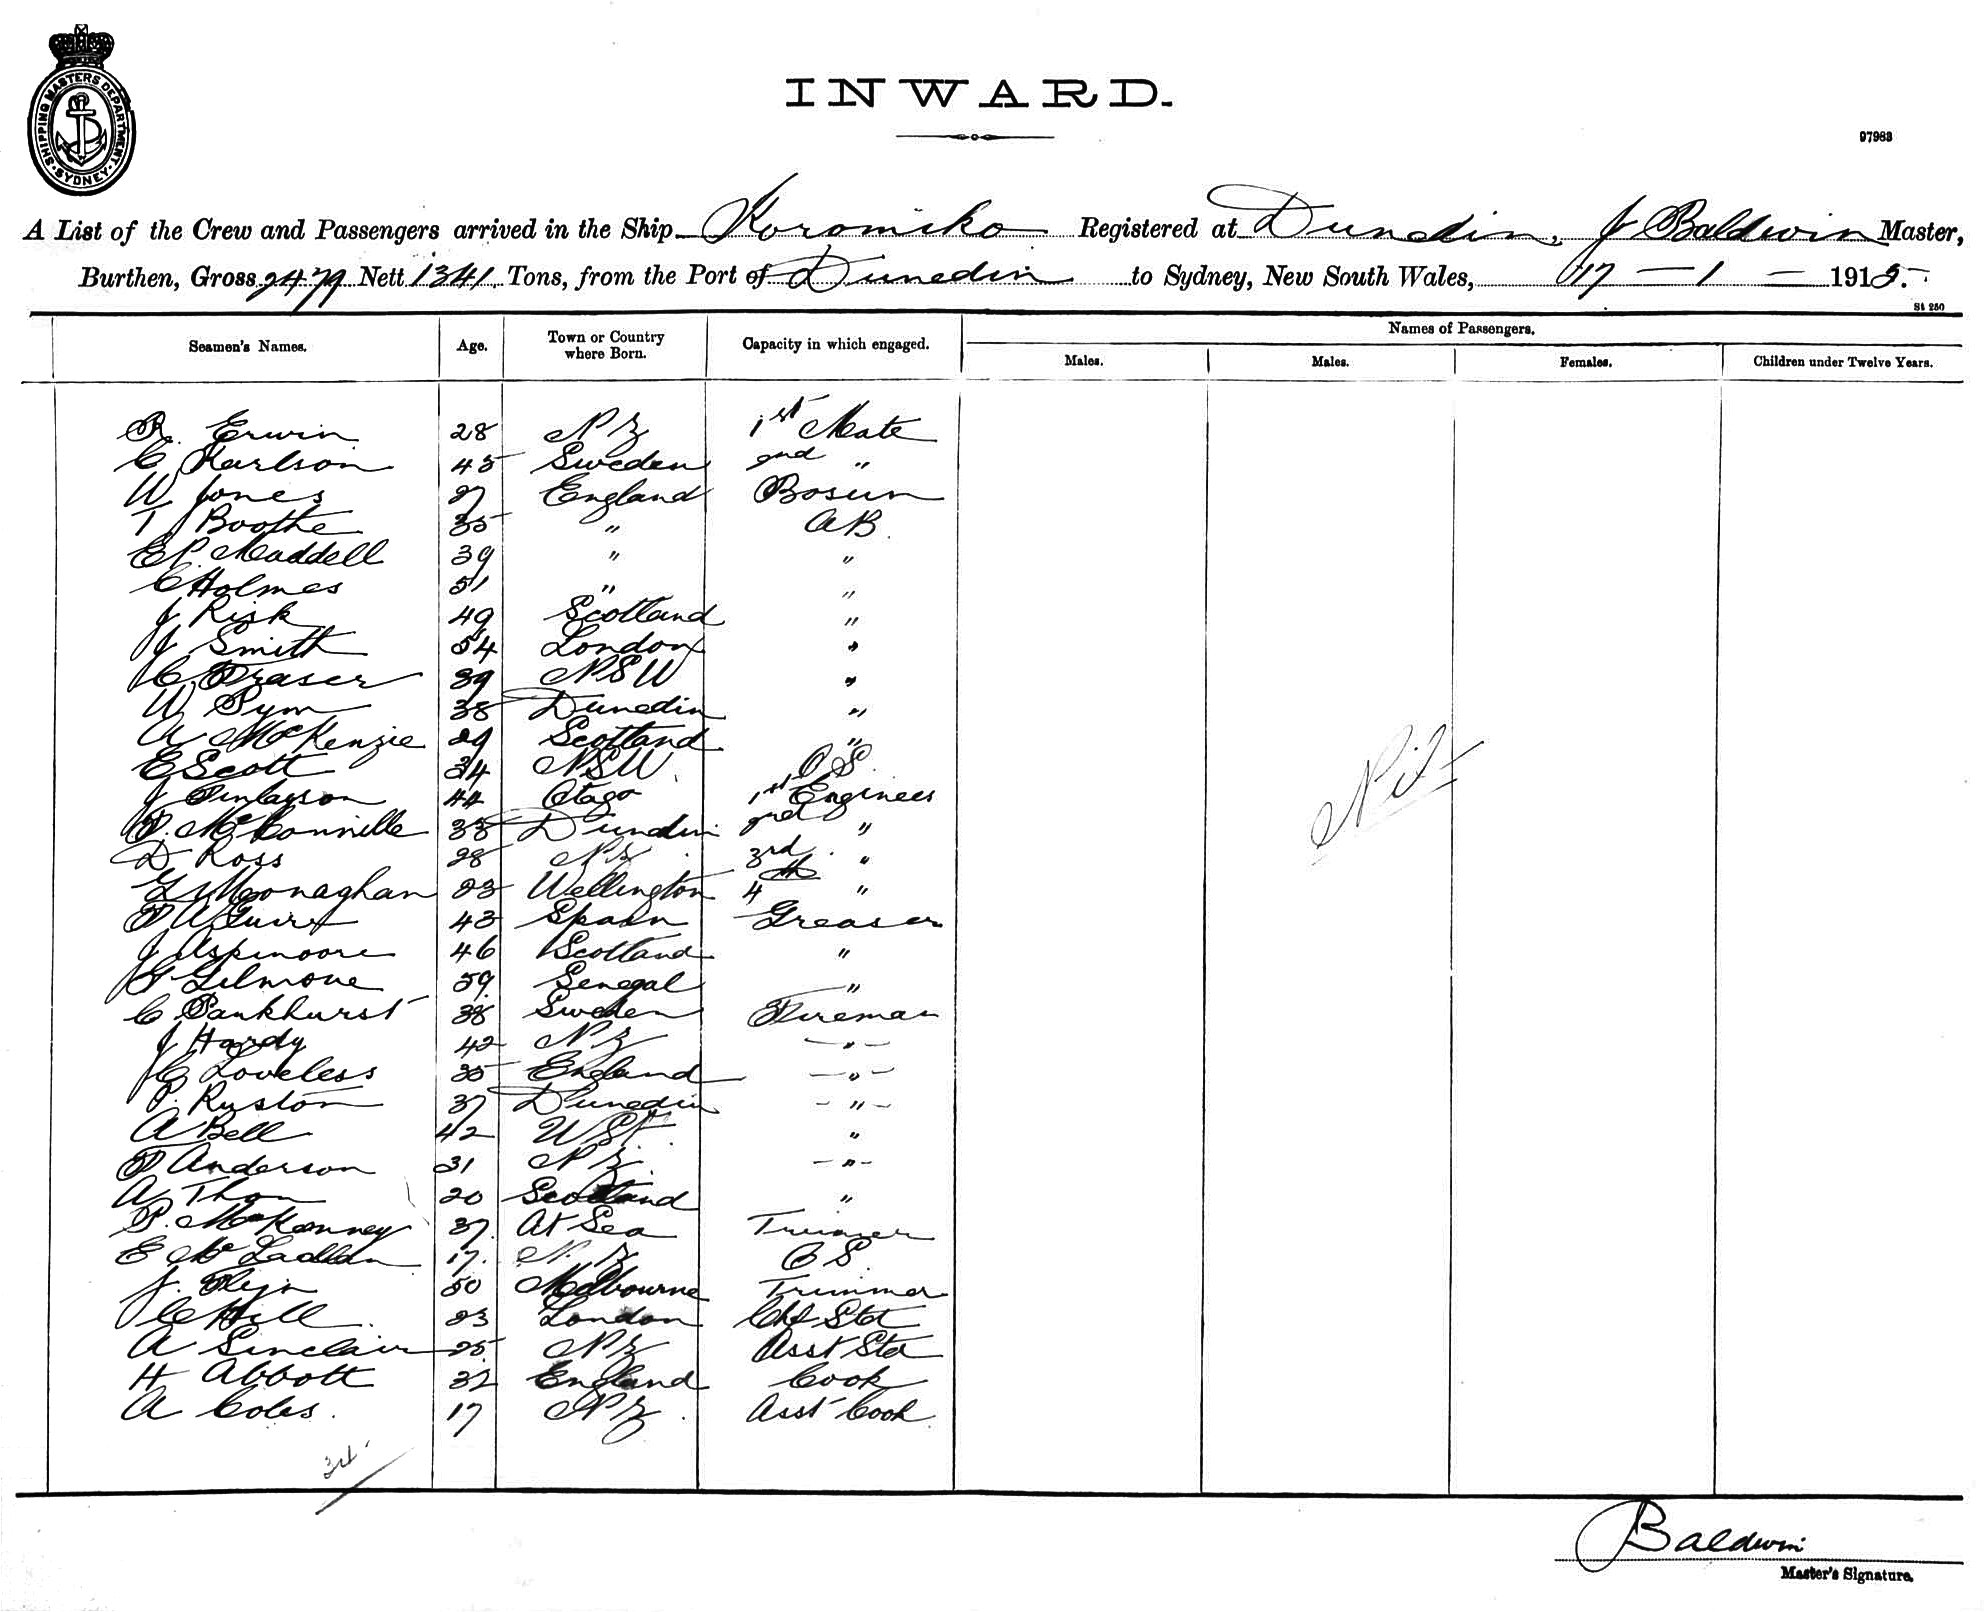 SHIPPING MASTERS DEPARTMENT · SYDNEY ·
INWARD.
97983
A List of the Crew and Passengers arrived in the Ship Koromiko Registered at Dunedin, J Baldwin Master,
Burthen, Gross 2479 Nett 1341 Tons, from the Port of Dunedin to Sydney, New South Wales, 17 – 1 – 1915.
St 250
Seamen's Names. Age. Town or Country where Born. Capacity in which engaged. Names of Passengers.
Males. Males. Females. Children under Twelve Years.
R. Erwin 28 NZ 1st Mate
C Karlson 45 Sweden 2nd "
W Jones 27 England Bosun
T Boothe 35 " AB.
E P. Maddell 39 " "
C Holmes 51 " "
J Risk 49 Scotland "
J Smith 54 London "
C. Fraser 39 NSW "
W Pym 38 Dunedin "
A McKenzie 29 Scotland "
E Scott 34 NSW O S.
J Finlayson 44 Otago 1st Engineer
McConnille Dunedin 2nd "
D Ross 28 NZ 3rd "
Monaghan 23 Wellington 4th "
43 Spain Greaser
J Aspinoore 46 Scotland "
Gilmore 59 Senegal "
C Pankhurst 38 Sweden Fireman
J Hardy 42 NZ – " –
Loveless 35 England – " –
P. Ruston 37 Dunedin – " –
A Bell 42 "
Anderson 31 NZ – " –
A Thom 20 Scotland "
P. 37 At Sea Trimmer
E Mc 17. N. Z S.
J. 50 Melbourne Trimmer
C Hill 23 London Chf Std
A Sinclair 25 NZ Asst Std
H Abbott 32 England Cook
A Coles. 17 NZ Asst Cook
Nil
34
Baldwin
Master's Signature.